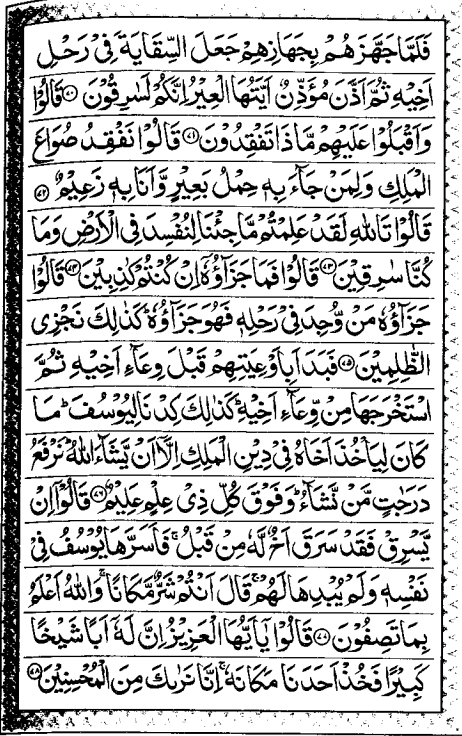 فَلَمَّا جَهَّزَهُمْ بِجَهَازِهِمْ جَعَلَ السِّقَايَةَ فِيْ رَحْلِ
اَخِيْهِ ثُمَّ اَذَّنَ مُؤَذِّنٌ اَيَّتُهَا الْعِيْرُ اِنَّكُمْ لَسٰرِقُوْنَ ﴿۷۰﴾ قَالُوْا
وَاَقْبَلُوْا عَلَيْهِمْ مَّاذَا تَفْقِدُوْنَ ﴿۷۱﴾ قَالُوْا نَفْقِدُ صُوَاعَ
الْمَلِكِ وَلِمَنْ جَآءَ بِهٖ حِمْلُ بَعِيْرٍ وَّاَنَا بِهٖ زَعِيْمٌ ﴿۷۲﴾
قَالُوْا تَاللّٰهِ لَقَدْ عَلِمْتُمْ مَّا جِئْنَا لِنُفْسِدَ فِى الْاَرْضِ وَمَا
كُنَّا سٰرِقِيْنَ ﴿۷۳﴾ قَالُوْا فَمَا جَزَآؤُهٗۤ اِنْ كُنْتُمْ كٰذِبِيْنَ ﴿۷۴﴾ قَالُوْا
جَزَآؤُهٗ مَنْ وُّجِدَ فِيْ رَحْلِهٖ فَهُوَ جَزَآؤُهٗ ؕ كَذٰلِكَ نَجْزِى
الظّٰلِمِيْنَ ﴿۷۵﴾ فَبَدَاَ بِاَوْعِيَتِهِمْ قَبْلَ وِعَآءِ اَخِيْهِ ثُمَّ
اسْتَخْرَجَهَا مِنْ وِّعَآءِ اَخِيْهِ ؕ كَذٰلِكَ كِدْنَا لِيُوْسُفَ ؕ مَا
كَانَ لِيَاْخُذَ اَخَاهُ فِيْ دِيْنِ الْمَلِكِ اِلَّاۤ اَنْ يَّشَآءَ اللّٰهُ ؕ نَرْفَعُ
دَرَجٰتٍ مَّنْ نَّشَآءُ ؕ وَفَوْقَ كُلِّ ذِيْ عِلْمٍ عَلِيْمٌ ﴿۷۶﴾ قَالُوْۤا اِنْ
يَّسْرِقْ فَقَدْ سَرَقَ اَخٌ لَّهٗ مِنْ قَبْلُ ۚ فَاَسَرَّهَا يُوْسُفُ فِيْ
نَفْسِهٖ وَلَمْ يُبْدِهَا لَهُمْ ۚ قَالَ اَنْتُمْ شَرٌّ مَّكَانًا ۚ وَاللّٰهُ اَعْلَمُ
بِمَا تَصِفُوْنَ ﴿۷۷﴾ قَالُوْا يٰۤاَيُّهَا الْعَزِيْزُ اِنَّ لَهٗۤ اَبًا شَيْخًا
كَبِيْرًا فَخُذْ اَحَدَنَا مَكَانَهٗ ۚ اِنَّا نَرٰىكَ مِنَ الْمُحْسِنِيْنَ ﴿۷۸﴾